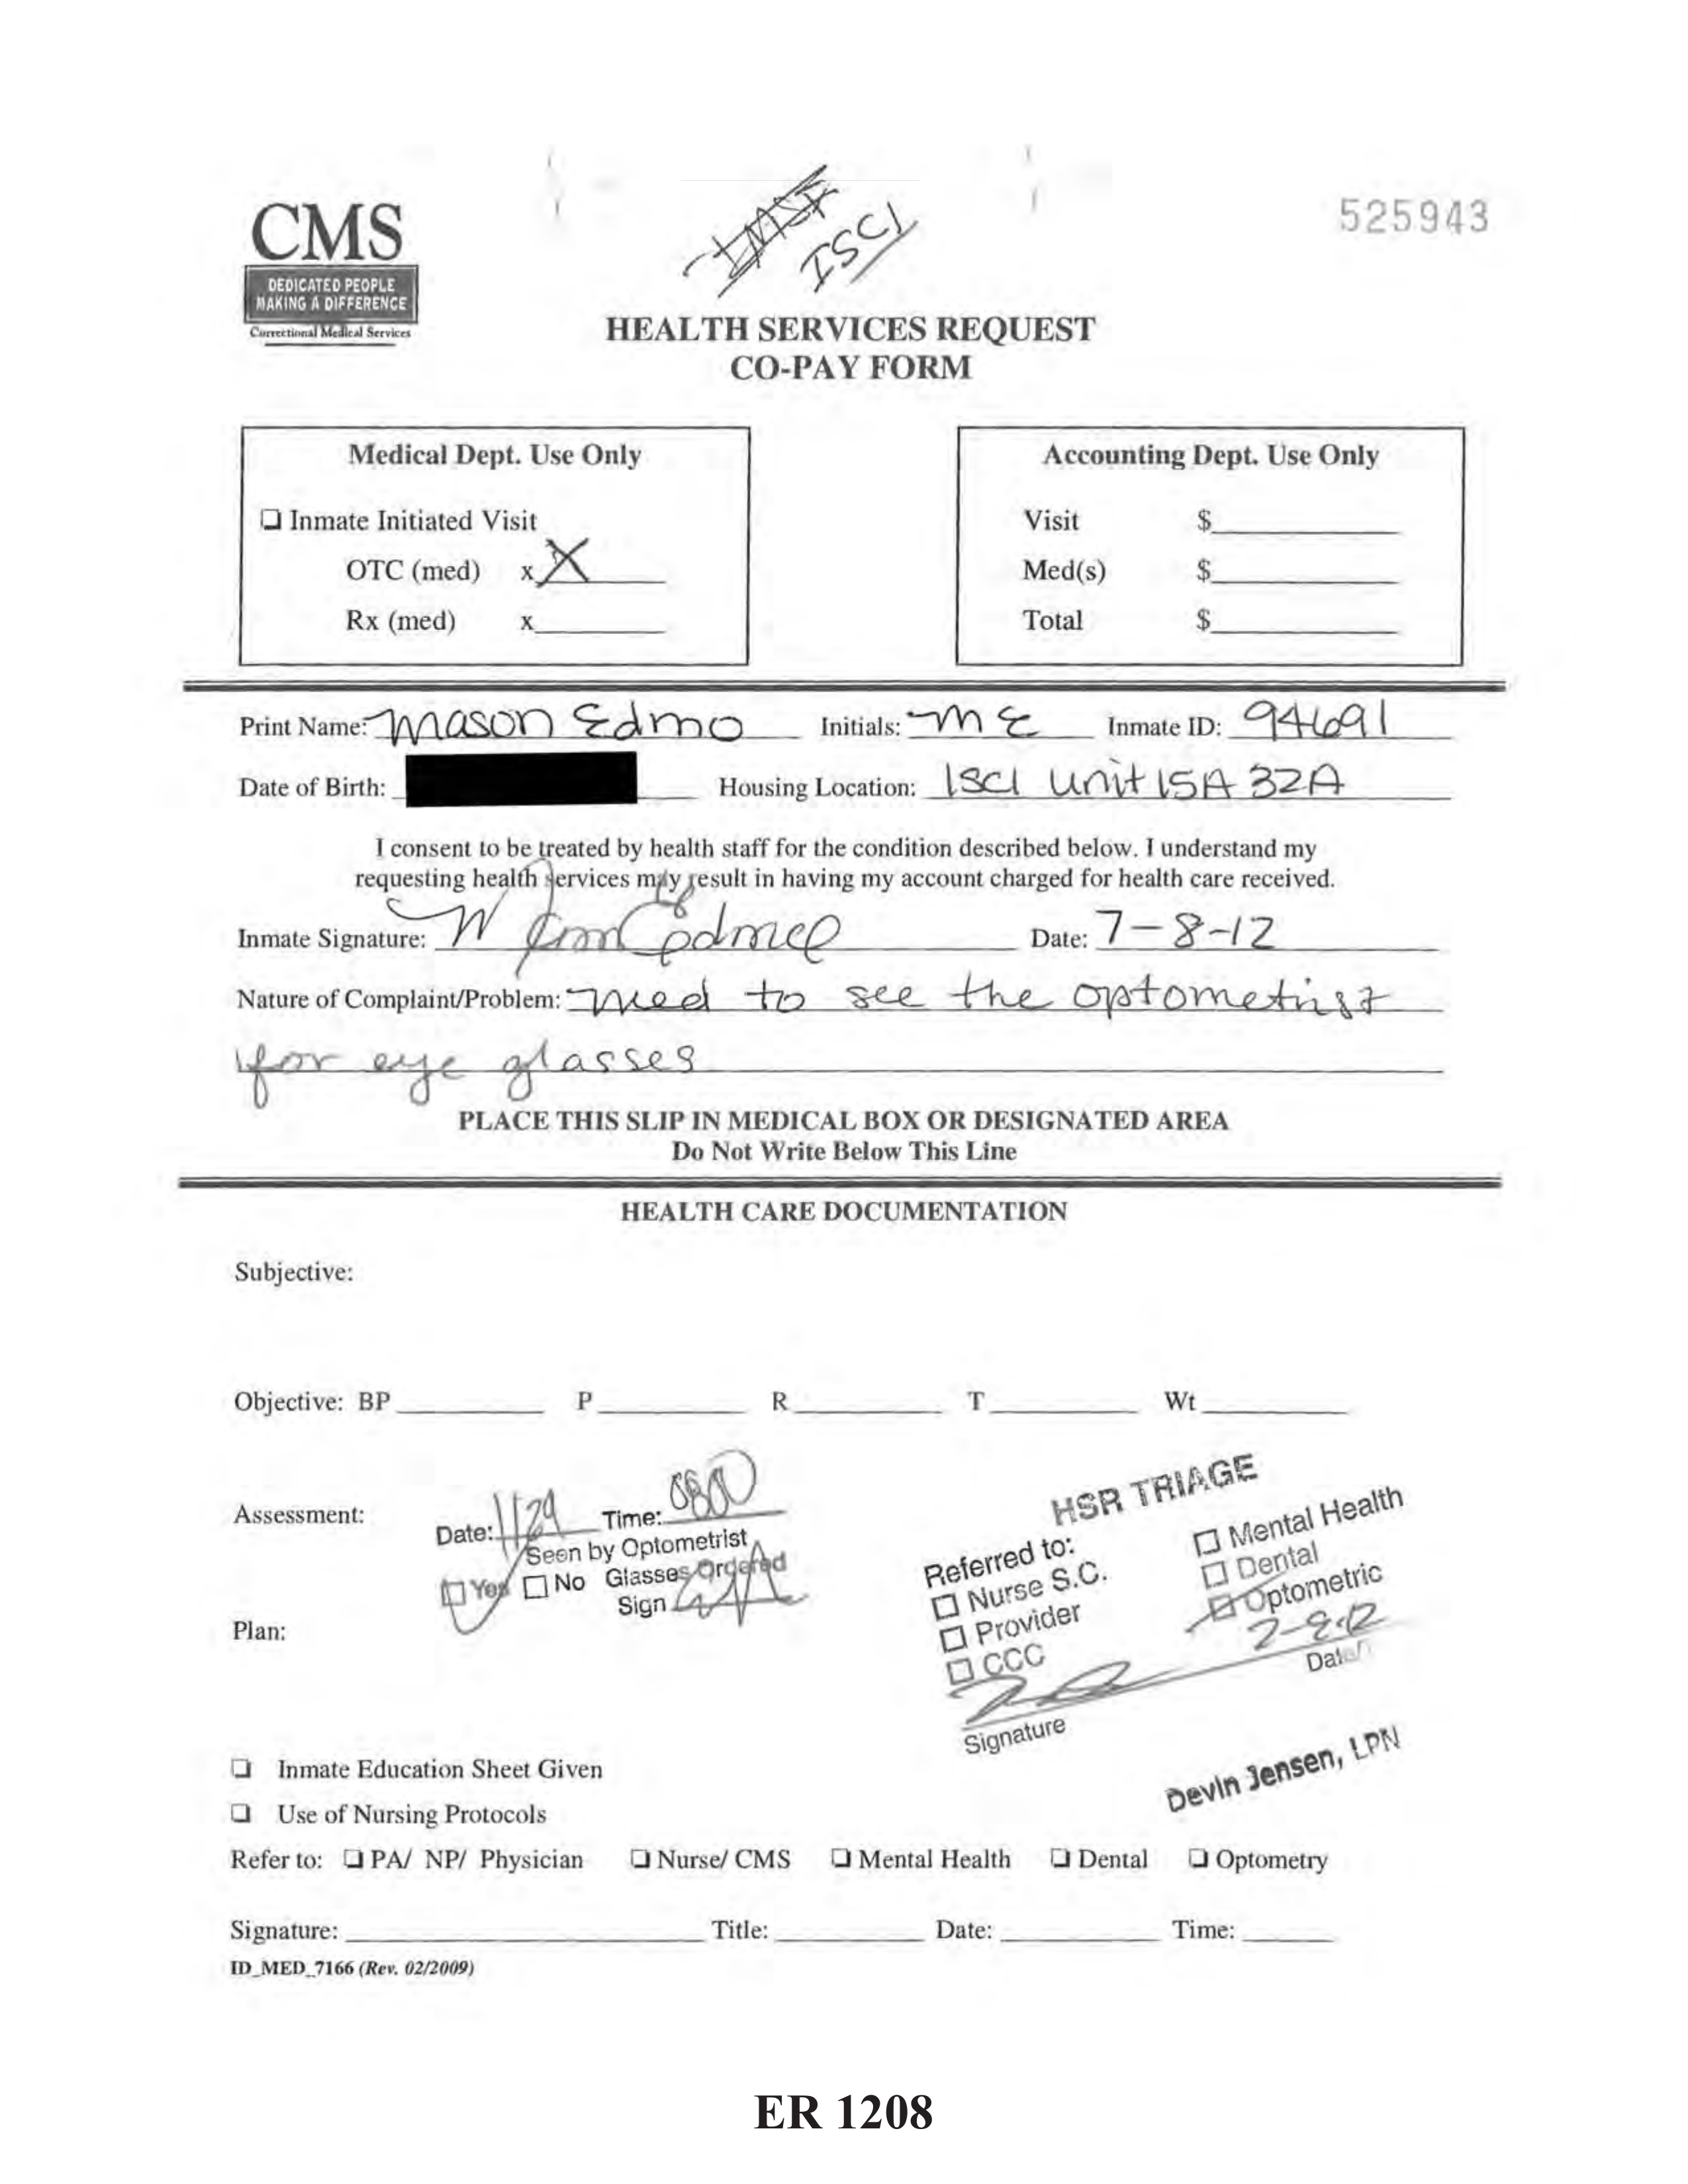 CMS
DEDICATED PEOPLE
MAKING A DIFFERENCE
Correctional Medical Services
ISCI
525943
HEALTH SERVICES REQUEST
CO-PAY FORM
Medical Dept. Use Only
❏ Inmate Initiated Visit
OTC (med) x X
Rx (med) x
Accounting Dept. Use Only
Visit $
Med(s) $
Total $
Print Name: Mason Edmo Initials: ME Inmate ID: 94691
Date of Birth: Housing Location: ISCI Unit 15A 32A
I consent to be treated by health staff for the condition described below. I understand my
requesting health services may result in having my account charged for health care received.
Inmate Signature: Date: 7-8-12
Nature of Complaint/Problem: need to see the optometrist
for eye glasses
PLACE THIS SLIP IN MEDICAL BOX OR DESIGNATED AREA
Do Not Write Below This Line
HEALTH CARE DOCUMENTATION
Subjective:
Objective: BP P R T Wt
Assessment:
Date: 1/29 Time: 0800
Seen by Optometrist
Yes No Glasses Ordered
Sign
HSR TRIAGE
Referred to:
Nurse S.C.
Provider
CCC
Mental Health
Dental
Optometric
Date
Signature
Devin Jensen, LPN
Plan:
❏ Inmate Education Sheet Given
❏ Use of Nursing Protocols
Refer to: ❏ PA/ NP/ Physician ❏ Nurse/ CMS ❏ Mental Health ❏ Dental ❏ Optometry
Signature: Title: Date: Time:
ID_MED_7166 (Rev. 02/2009)
ER 1208